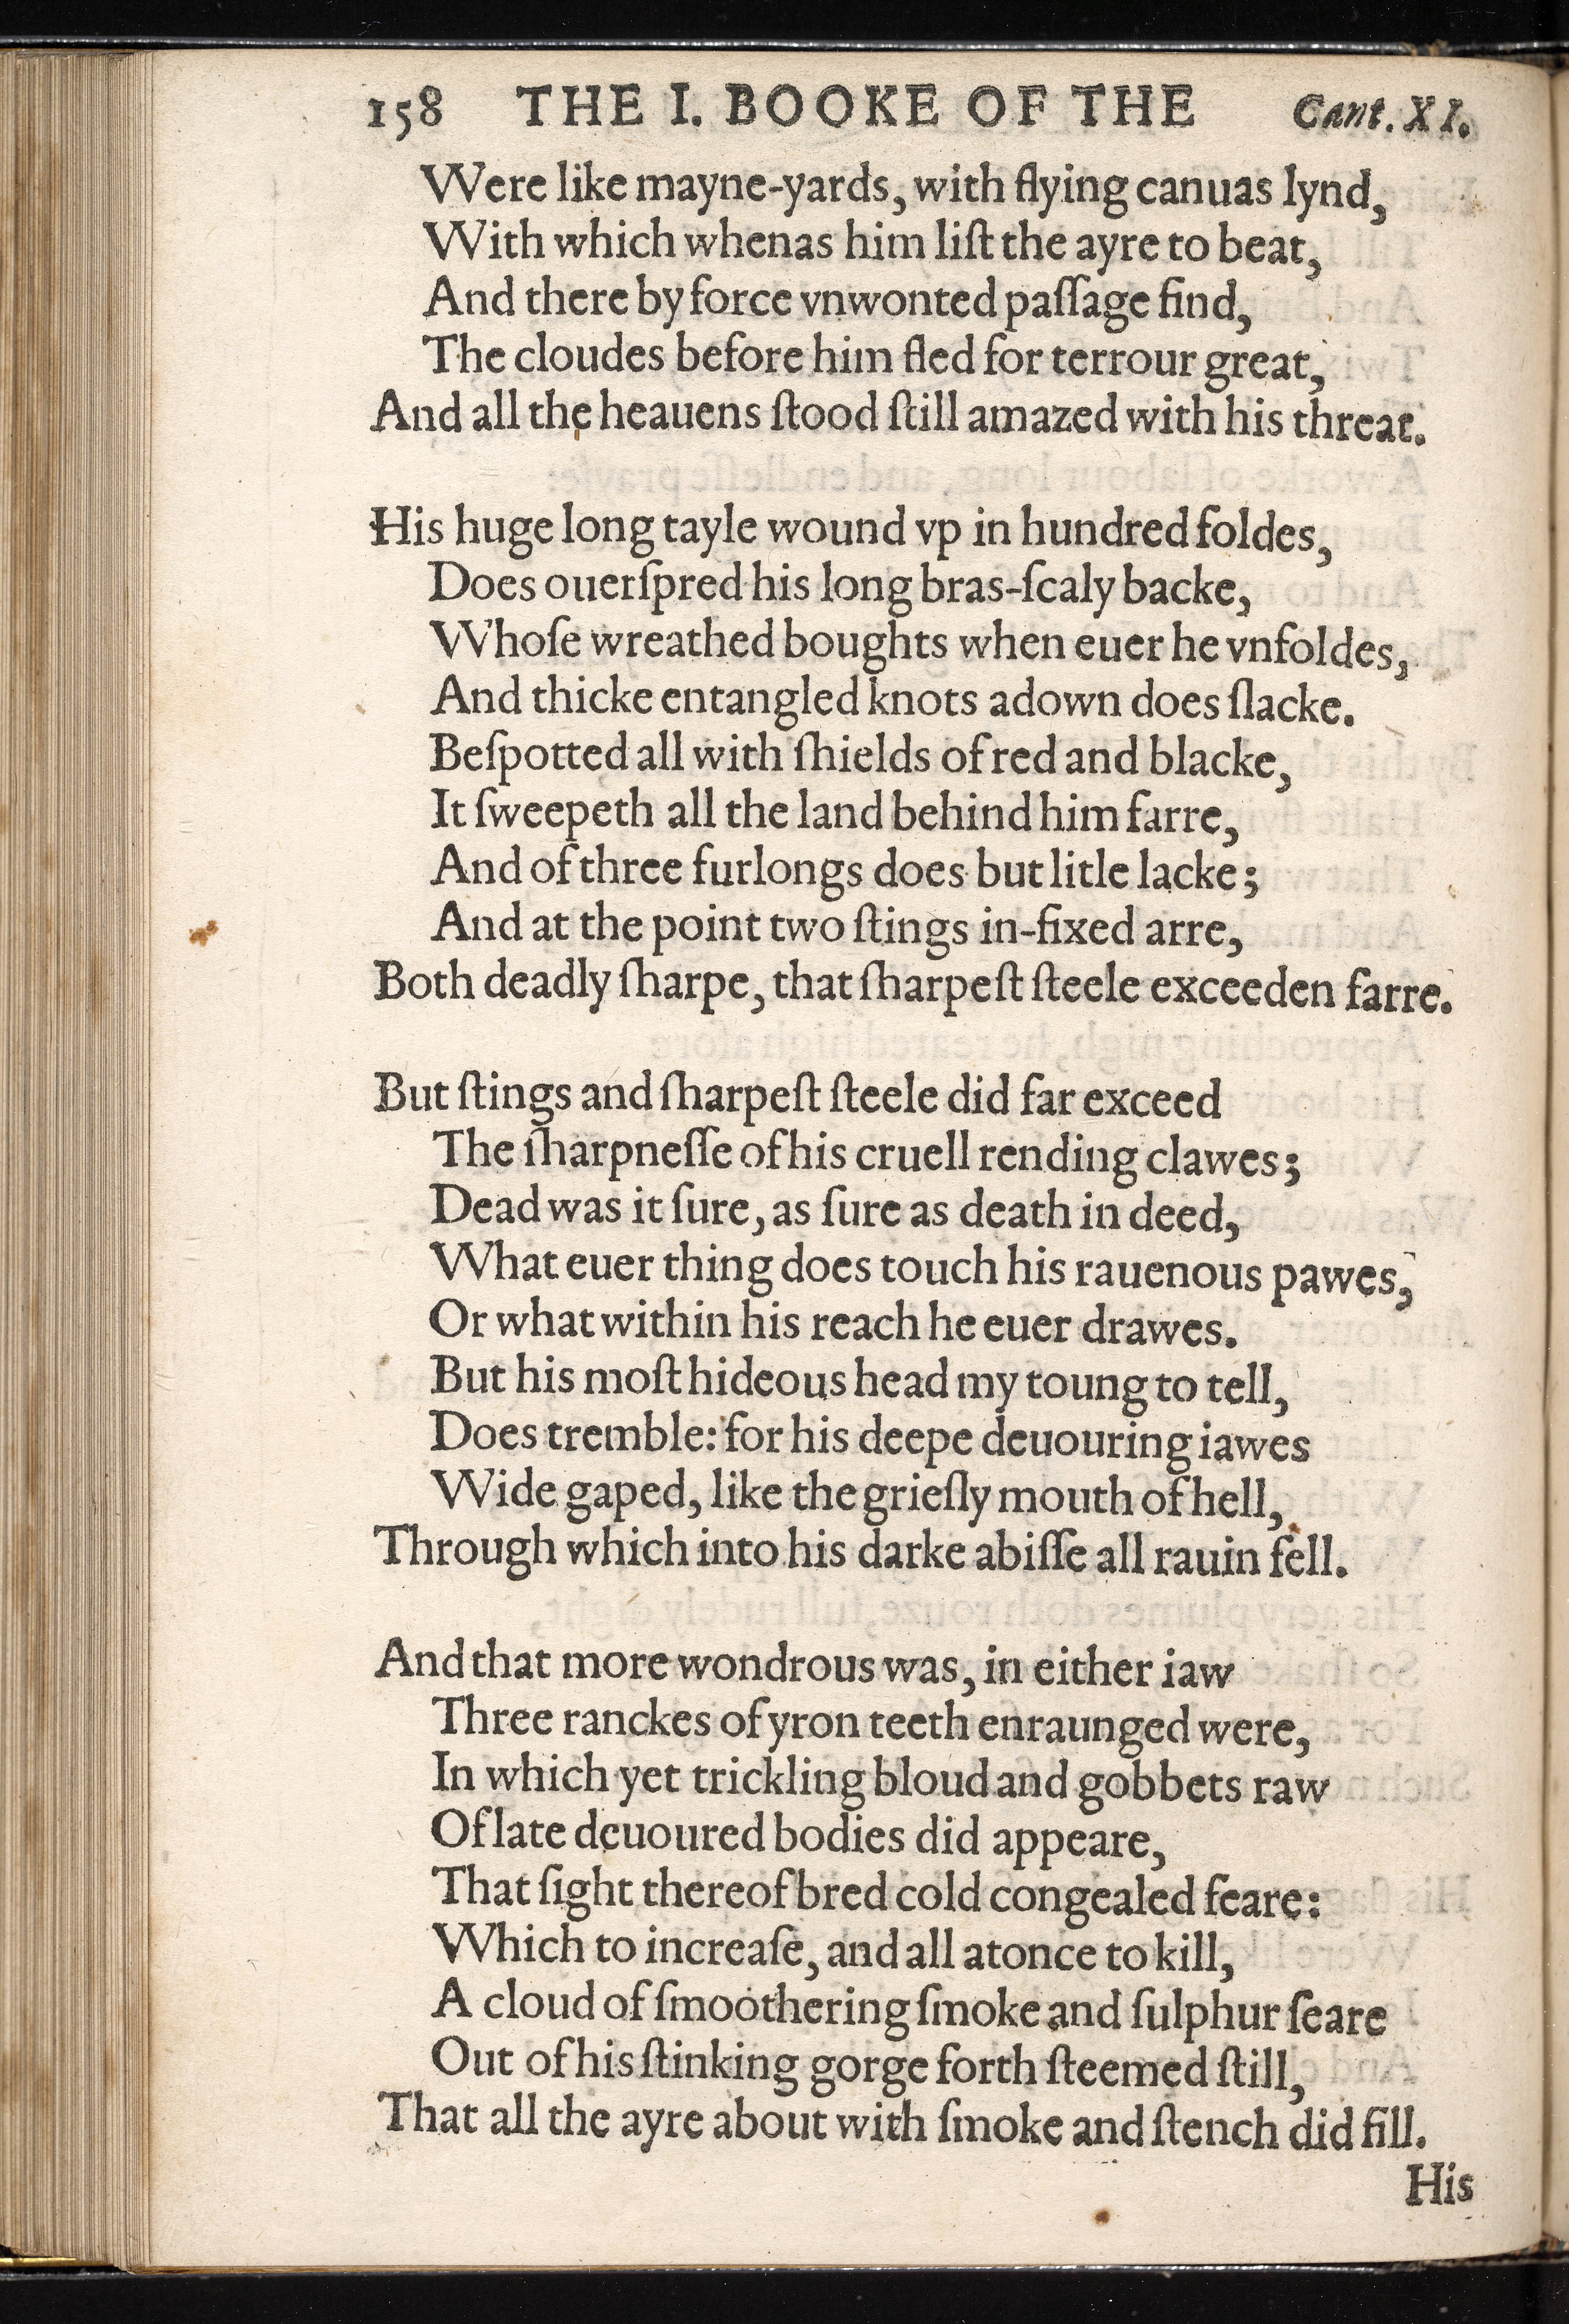 158 THE I. BOOKE OF THE Cant. XI.
Were like mayne-yards, with flying canuas lynd,
With which whenas him liſt the ayre to beat,
And there by force vnwonted paſſage find,
The cloudes before him fled for terrour great,
And all the heauens ſtood ſtill amazed with his threat.
His huge long tayle wound vp in hundred foldes,
Does ouerſpred his long bras-ſcaly backe,
Whoſe wreathed boughts when euer he vnfoldes,
And thicke entangled knots adown does ſlacke.
Beſpotted all with ſhields of red and blacke,
It ſweepeth all the land behind him farre,
And of three furlongs does but litle lacke;
And at the point two ſtings in-fixed arre,
Both deadly ſharpe, that ſharpeſt ſteele exceeden farre.
But ſtings and ſharpeſt ſteele did far exceed
The ſharpneſſe of his cruell rending clawes;
Dead was it ſure, as ſure as death in deed,
What euer thing does touch his rauenous pawes,
Or what within his reach he euer drawes.
But his moſt hideous head my toung to tell,
Does tremble: for his deepe deuouring iawes
Wide gaped, like the grieſly mouth of hell,
Through which into his darke abiſſe all rauin fell.
And that more wondrous was, in either iaw
Three ranckes of yron teeth enraunged were,
In which yet trickling bloud and gobbets raw
Of late deuoured bodies did appeare,
That ſight thereof bred cold congealed feare:
Which to increaſe, and all atonce to kill,
A cloud of ſmoothering ſmoke and ſulphur ſeare
Out of his ſtinking gorge forth ſteemed ſtill,
That all the ayre about with ſmoke and ſtench did fill.
His